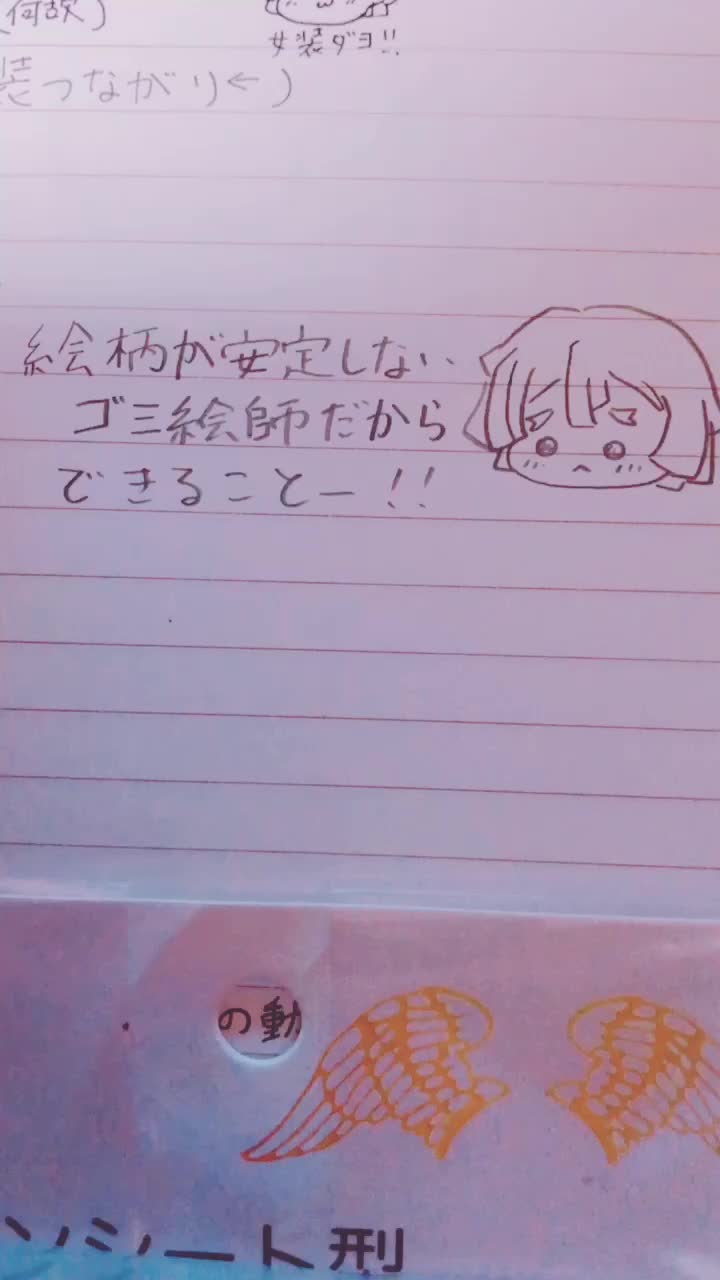 (何故)
女装ダヨ!!
装つながり←)
絵柄が安定しない
ゴミ絵師だから
できることー!!
の動
ンシート型